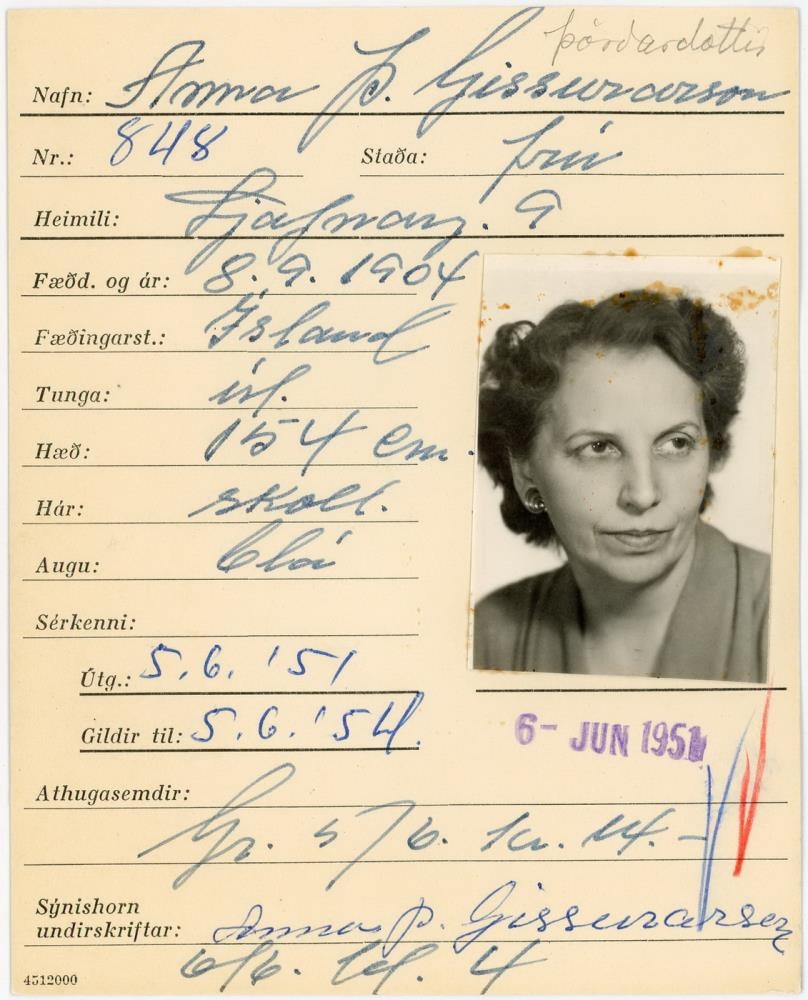 Þórðardóttir
Nafn: Anna Þ. Gissurarson
Nr.: 848 Staða: frú
Heimili: Fjafnarg. 9
Fæðd. og ár: 8. 9. 1904
Fæðingarst.: Ísland
Tunga: ísl.
Hæð: 154 cm.
Hár: skoll.
Augu: blá
Sérkenni:
Útg.: 5.6. '51
Gildir til: 5.6. '54.
6- JUN 1951
Athugasemdir:
Gr. 5/6. kr. 14.-
Sýnishorn
undirskriftar: Anna Þ. Gissurarson
6/6. kl. 4
4512000